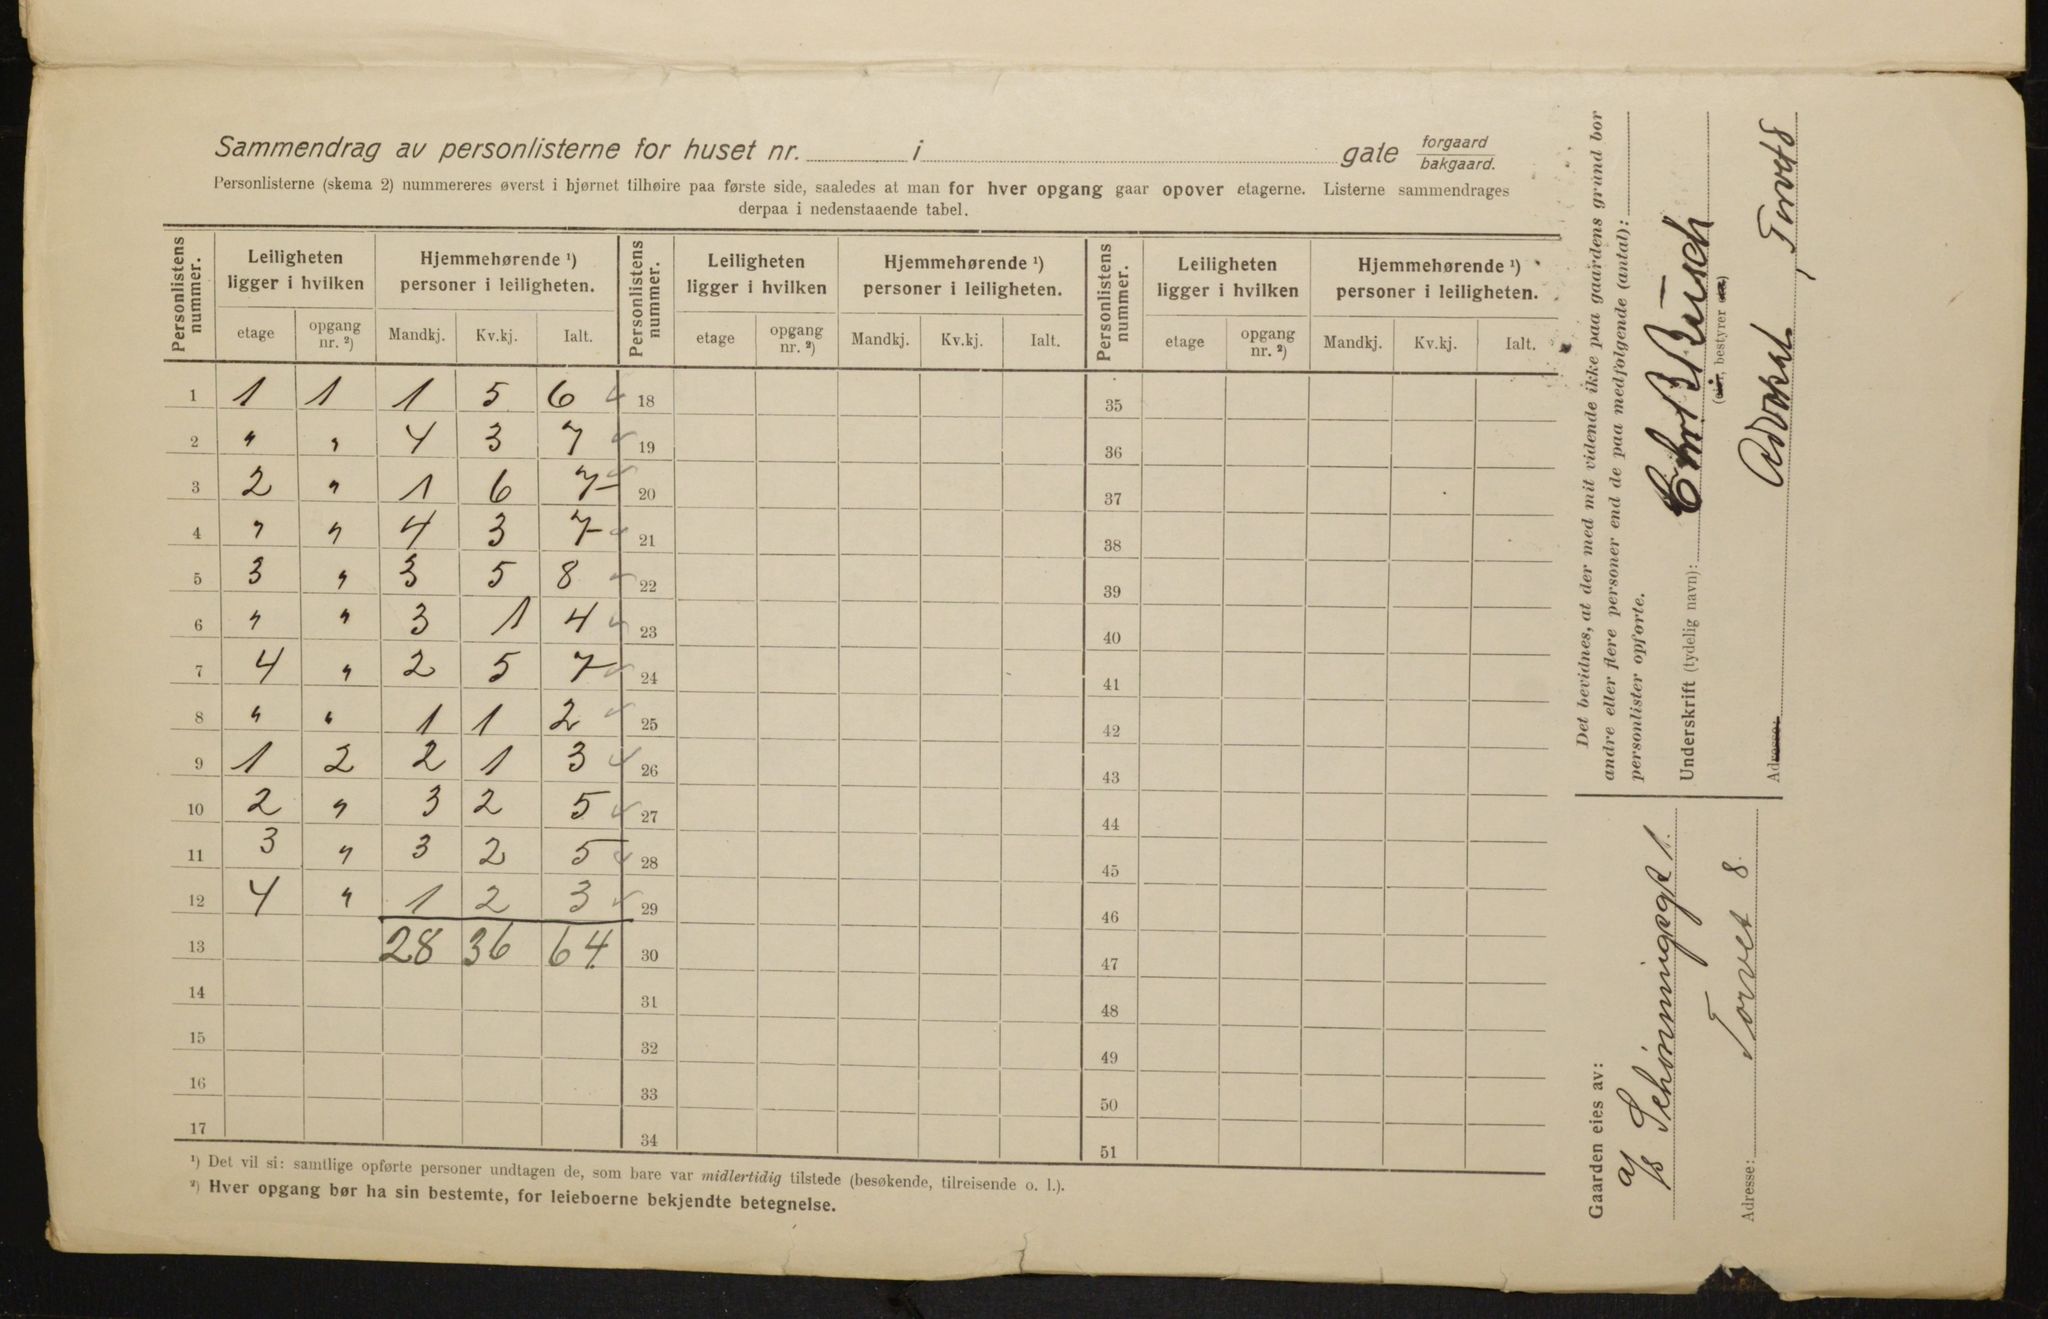 Sammendrag av personlisterne for huset nr. i gate forgaard bakgaard.
Personlisterne (skema 2) nummereres øverst i hjørnet tilhøire paa første side, saaledes at man for hver opgang gaar opover etagerne. Listerne sammendrages
derpaa i nedenstaaende tabel.
Personlistens nummer. Leiligheten ligger i hvilken Hjemmehørende ¹) personer i leiligheten. Personlistens nummer. Leiligheten ligger i hvilken Hjemmehørende ¹) personer i leiligheten. Personlistens nummer. Leiligheten ligger i hvilken Hjemmehørende ¹) personer i leiligheten.
etage opgang nr. ²) Mandkj. Kv.kj. Ialt. etage opgang nr. ²) Mandkj. Kv.kj. Ialt. etage opgang nr. ²) Mandkj. Kv.kj. Ialt.
1 1 1 1 5 6 18 35
2 " " 4 3 7 19 36
3 2 " 1 6 7 20 37
4 " " 4 3 7 21 38
5 3 " 3 5 8 22 39
6 " " 3 1 4 23 40
7 4 " 2 5 7 24 41
8 " " 1 1 2 25 42
9 1 2 2 1 3 26 43
10 2 " 3 2 5 27 44
11 3 " 3 2 5 28 45
12 4 " 1 2 3 29 46
13 28 36 64 30 47
14 31 48
15 32 49
16 33 50
17 34 51
¹) Det vil si: samtlige opførte personer undtagen de, som bare var midlertidig tilstede (besøkende, tilreisende o. l.).
²) Hver opgang bør ha sin bestemte, for leieboerne bekjendte betegnelse.
Det bevidnes, at der med mit vidende ikke paa gaardens grund bor
andre eller flere personer end de paa medfølgende (antal):
personlister opførte.
Underskrift (tydelig navn): Chr. B. Busch
(eier, bestyrer
Adresse: Advokat, Torvet 8
Gaarden eies av:
A/S Schønningsgt 1.
Adresse: Torvet 8.